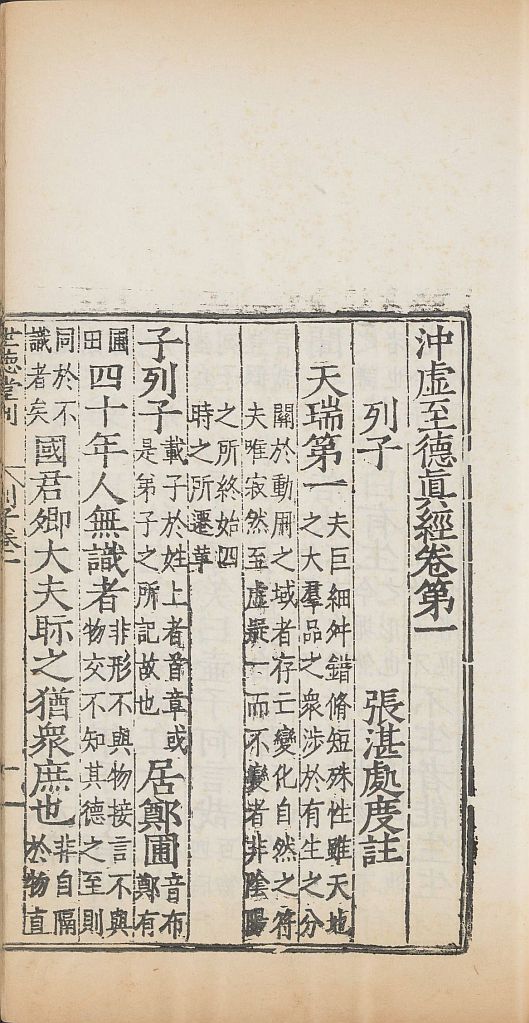 沖虛至德眞經卷第一
列子 張湛處度註
天瑞第一 夫巨細舛錯脩短殊性雖天地之大羣品之衆涉於有生之分
關於動用之域者存亡變化自然之符夫唯寂然至虛凝一而不變者非陰陽
之所終始四時之所遷革
子列子 載子於姓上者首章或是第子之所記故也 居鄭圃 音布鄭有
圃田 四十年人無識者 非形不與物接言不與物交不知其德之至則
同於不識者矣 國君卿大夫眎之猶衆庶也 非自隔於物直
世德堂刊 列子卷一